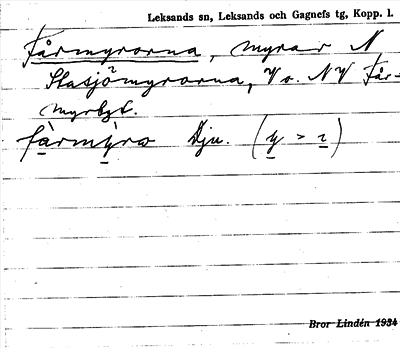 Leksands sn, Leksands och Gagnefs tg, Kopp. l.
Fårmyrorna, myrar N
Stasjömyrorna, V o. NV Får-
myrbyt.
fàrmỳra Dju. (y > ɿ)
Bror Lindén 1934